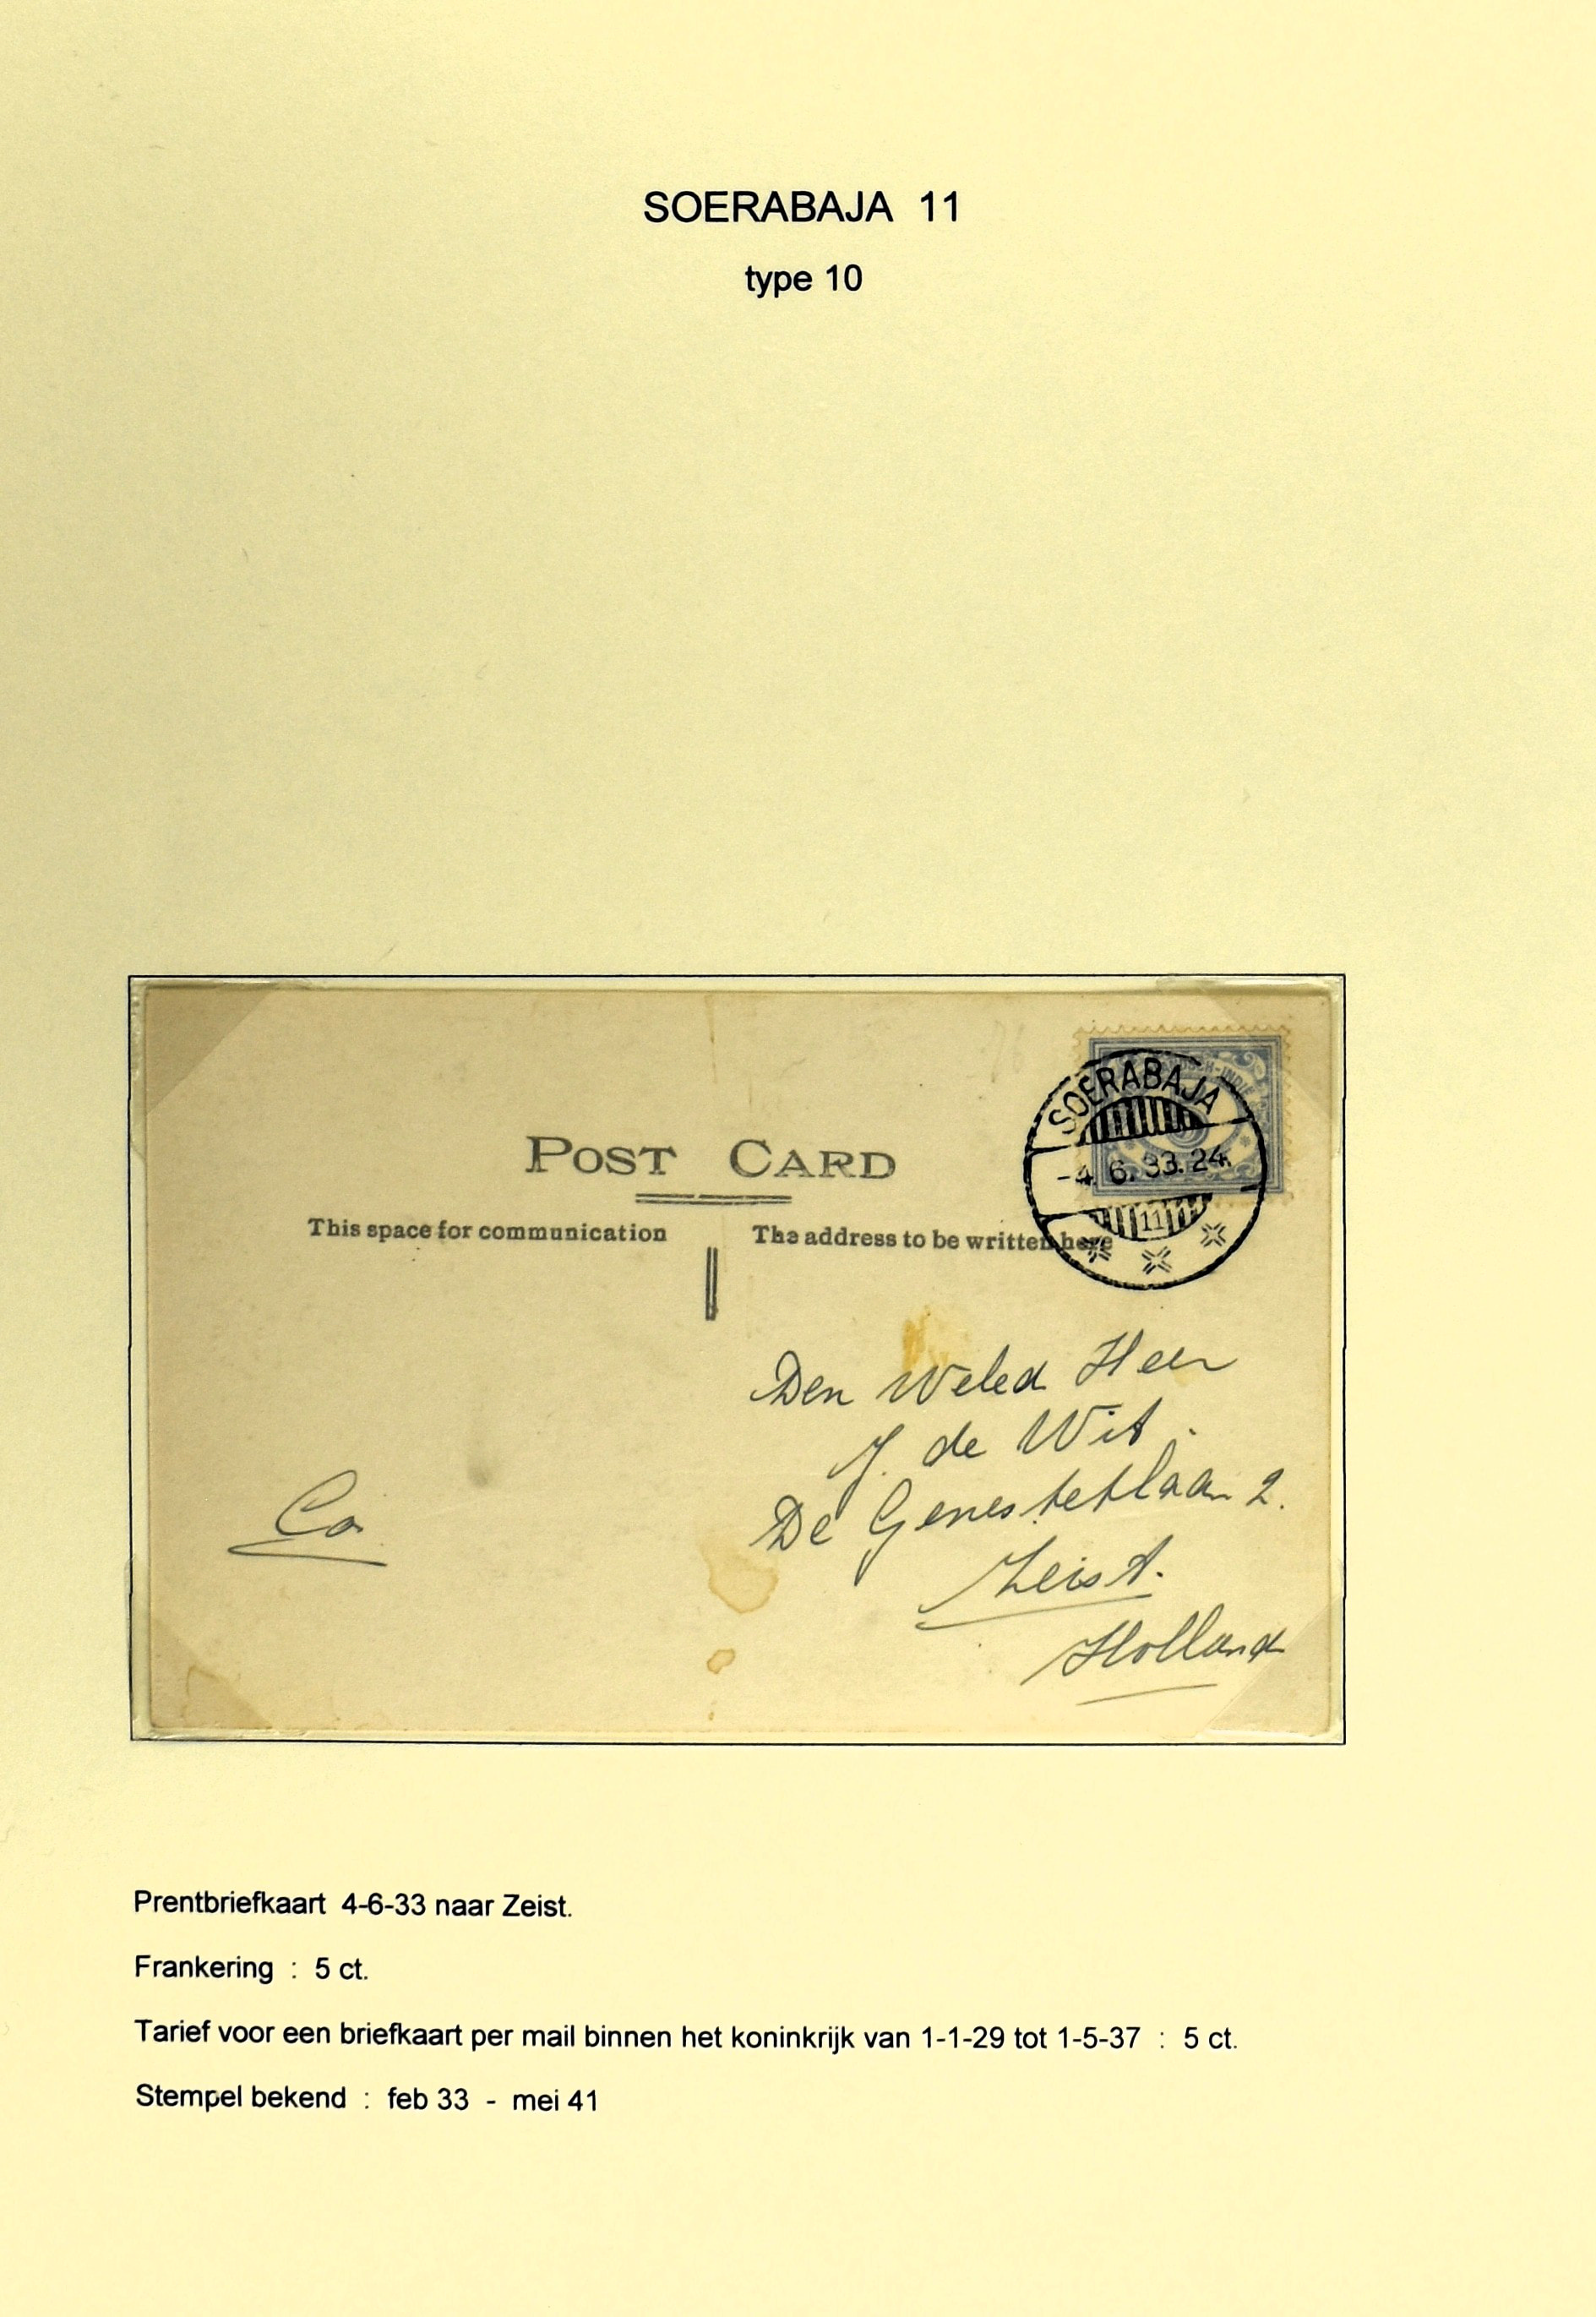 SOERABAJA 11
type 10
SOERABAJA
-4. 6. 33. 24
11
POST CARD
This space for communication
The address to be written here
Den Weled Heer
J. de Wit.
De Genestetlaan 2.
Zeist.
Holland
Prentbriefkaart 4-6-33 naar Zeist.
Frankering : 5 ct.
Tarief voor een briefkaart per mail binnen het koninkrijk van 1-1-29 tot 1-5-37 : 5 ct.
Stempel bekend : feb 33 - mei 41